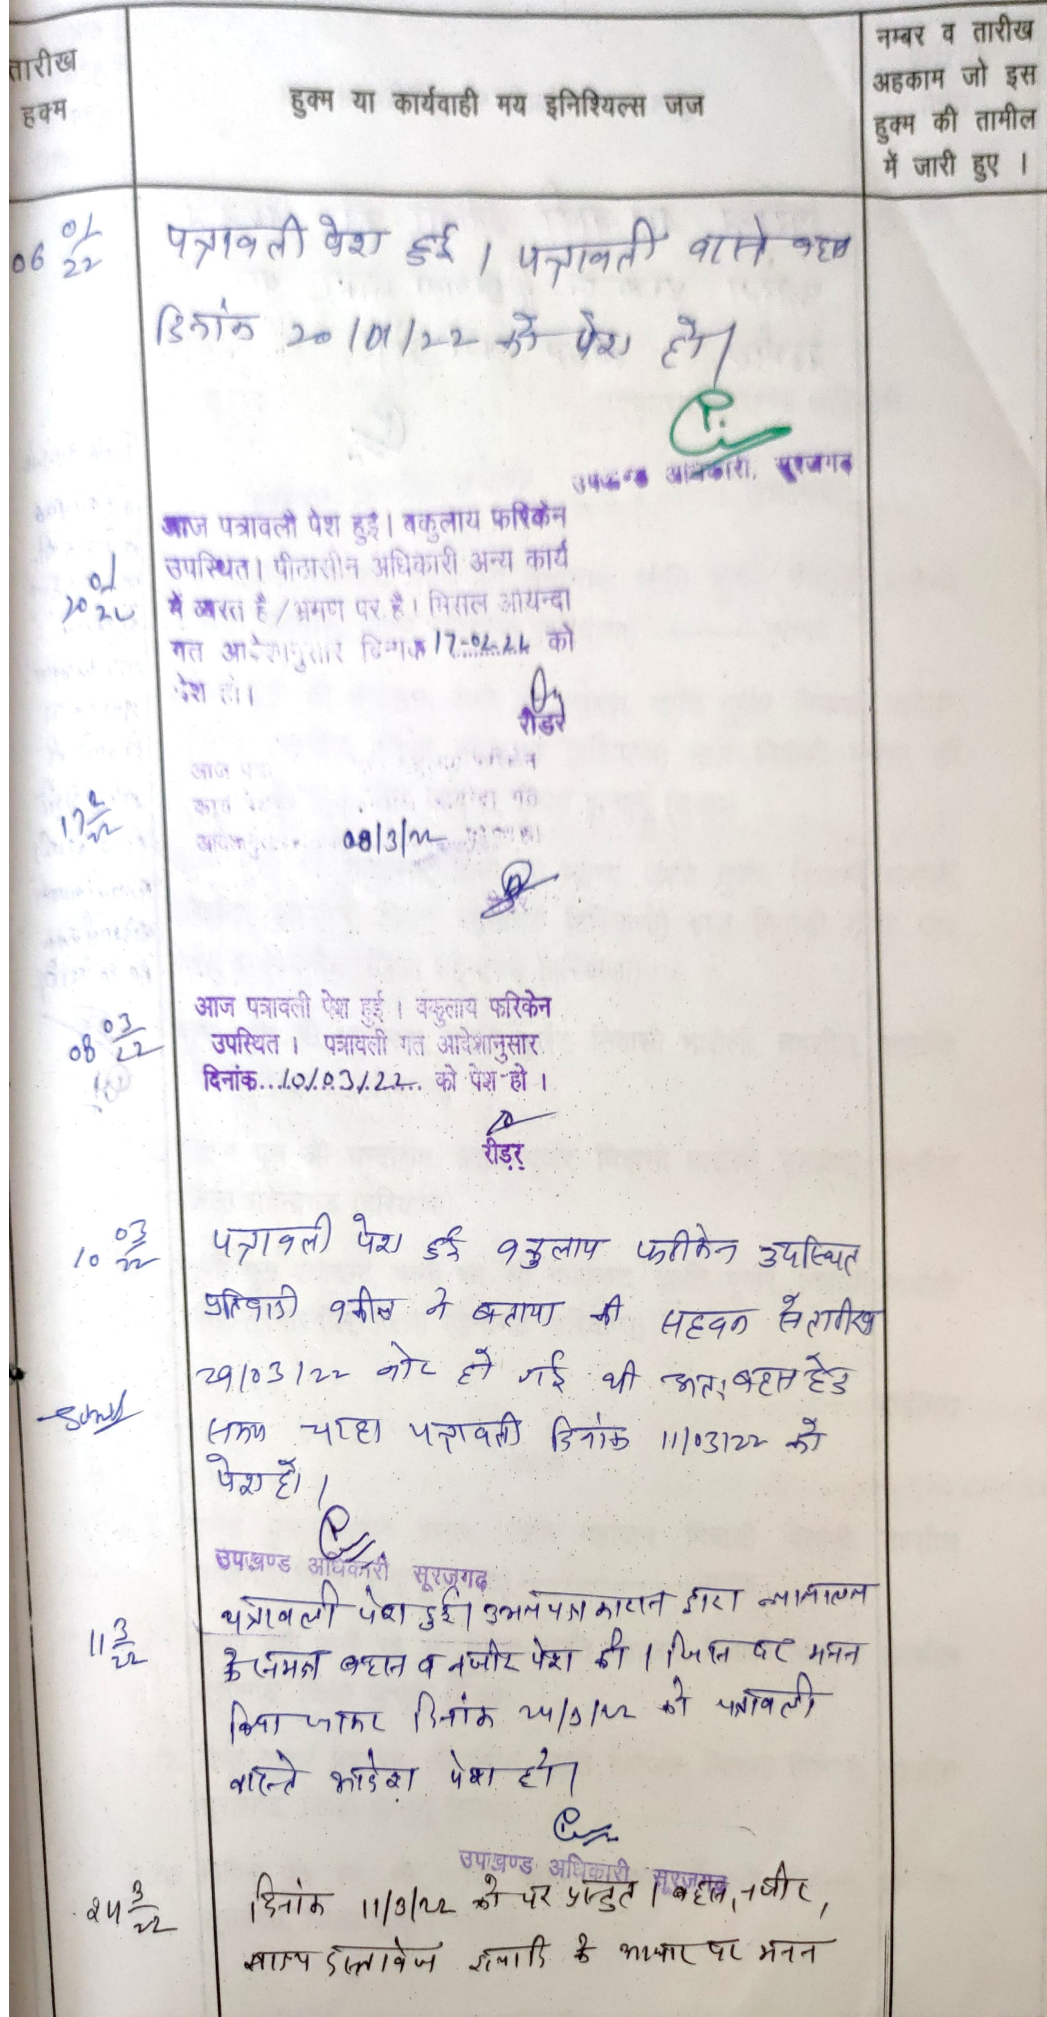 तारीख
हुक्म
हुक्म या कार्यवाही मय इनिश्यिल्स जज
नम्बर व तारीख
अहकाम जो इस
हुक्म की तामील
में जारी हुए ।
06 01/22
पत्रावली पेश हुई । पत्रावली वास्ते बहस
दिनांक 20/01/22 को पेश हो।
उपखण्ड अधिकारी, सूरजगढ
आज पत्रावली पेश हुई। वकुलाय फरिकेन
उपस्थित। पीठासीन अधिकारी अन्य कार्य
में व्यस्त है/भ्रमण पर है। मिसल आयन्दा
20 01
गत आदेशानुसार दिनांक 17-02-22 को
पेश हो।
रीडर
आज
17 2/22
08/3/22
08 03/22
आज पत्रावली पेश हुई । वकुलाय फरिकेन
उपस्थित । पत्रावली गत आदेशानुसार
दिनांक...10/03/22. को पेश हो ।
रीडर
10 03/22
पत्रावली पेश हुई वकुलाय फरीकेन उपस्थित
प्रतिवादी वकील ने बताया की सहवन से तारीख
29/03/22 नोट हो गई थी अतः बहस हेतु
समय चाहा पत्रावली दिनांक 11/03/22 को
पेश हो ।
उपखण्ड अधिकारी सूरजगढ
11 3/22
पत्रावली पेश हुई। उभयपक्षकारान द्वारा न्यायालय
के समक्ष बहस व नजीर पेश की । जिस पर मनन
किया जाकर दिनांक 24/3/22 को पत्रावली
वास्ते आदेश पेश हो।
उपखण्ड अधिकारी सूरजगढ
24 3/22
दिनांक 11/3/22 को पर प्रस्तुत । बहस, नजीर,
साक्ष्य दस्तावेज इत्यादि के आधार पर मनन